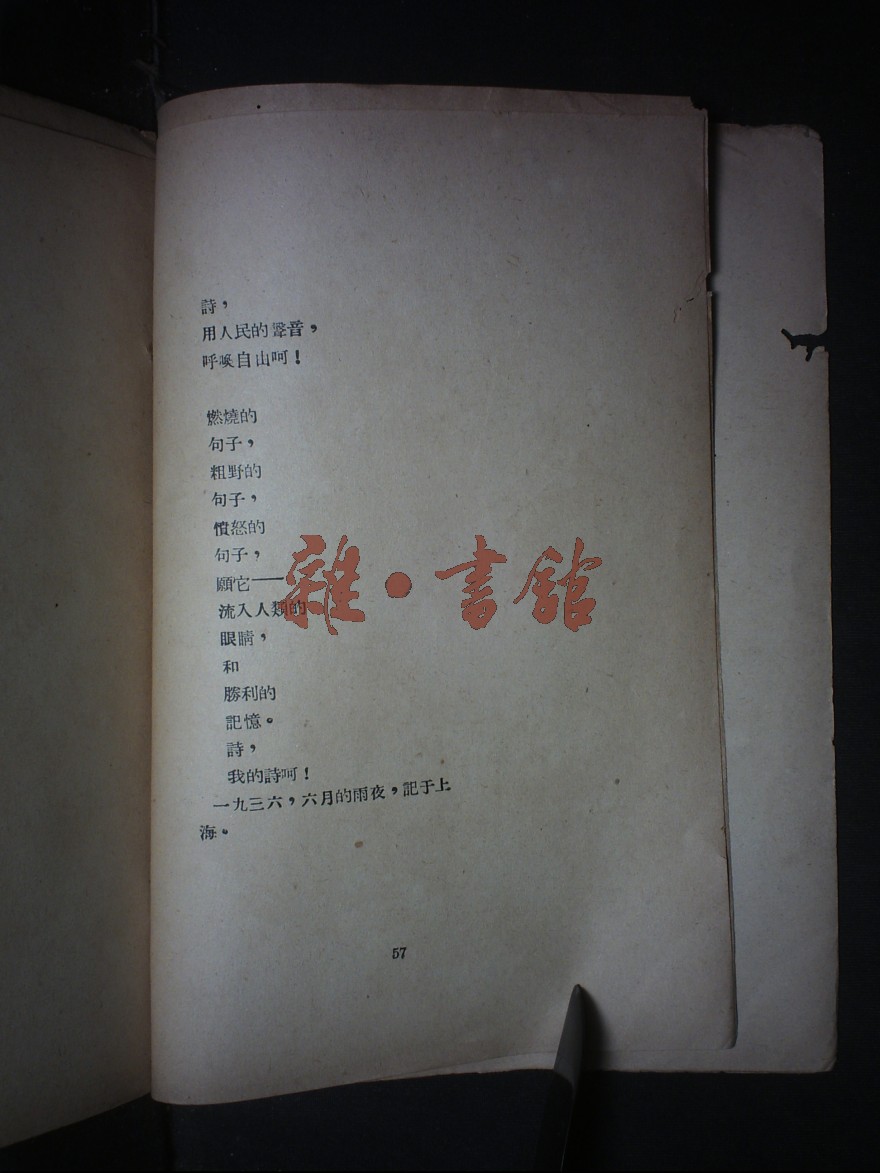 詩，
用人民的聲音，
呼喚自由呵！
燃燒的
句子，
粗野的
句子，
憤怒的
句子，
願它──
流入人類的
眼睛，
和
勝利的
記憶。
詩，
我的詩呵！
一九三六，六月的雨夜，記于上
海。
57
雜・書館